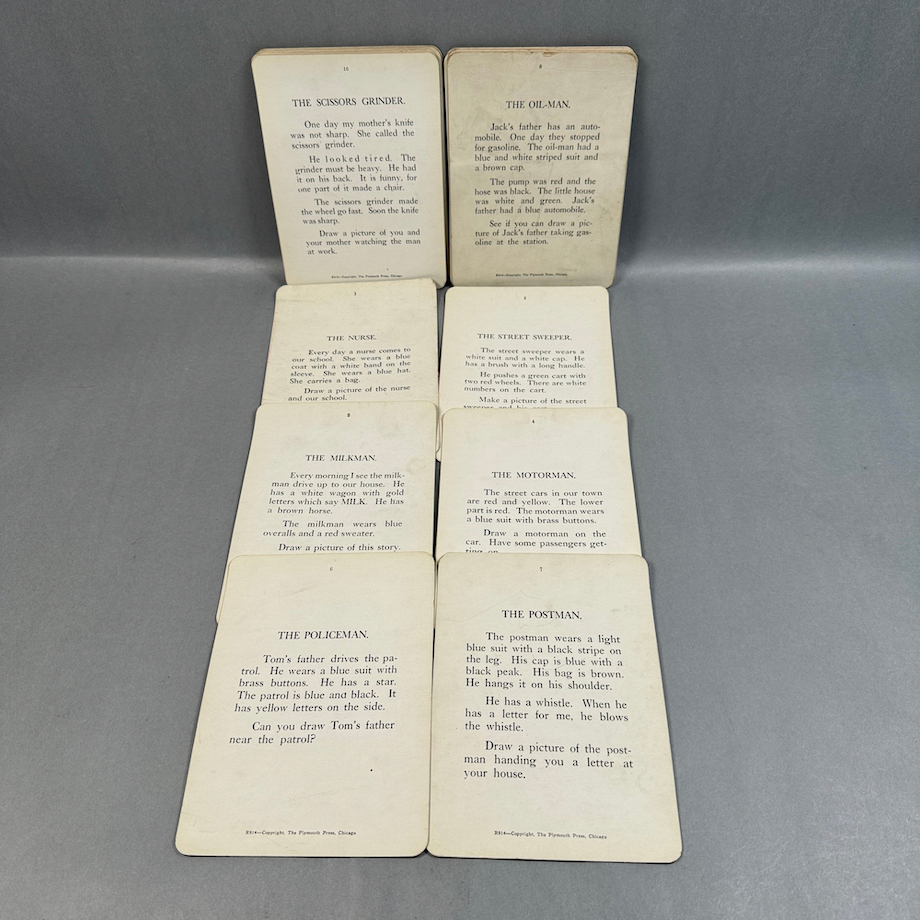 11
THE SCISSORS GRINDER.
One day my mother's knife
was not sharp. She called the
scissors grinder.
He looked tired. The
grinder must be heavy. He had
it on his back. It is funny, for
one part of it made a chair.
The scissors grinder made
the wheel go fast. Soon the knife
was sharp.
Draw a picture of you and
your mother watching the man
at work.
R914—Copyright, The Plymouth Press, Chicago
8
THE OIL-MAN.
Jack's father has an auto-
mobile. One day they stopped
for gasoline. The oil-man had a
blue and white striped suit and
a brown cap.
The pump was red and the
hose was black. The little house
was white and green. Jack's
father had a blue automobile.
See if you can draw a pic-
ture of Jack's father taking gas-
oline at the station.
R914—Copyright, The Plymouth Press, Chicago.
THE NURSE.
Every day a nurse comes to
our school. She wears a blue
coat with a white band on the
sleeve. She wears a blue hat.
She carries a bag.
Draw a picture of the nurse
and our school.
THE STREET SWEEPER.
The street sweeper wears a
white suit and a white cap. He
has a brush with a long handle.
He pushes a green cart with
two red wheels. There are white
numbers on the cart.
Make a picture of the street
sweeper and his cart
THE MILKMAN.
Every morning I see the milk-
man drive up to our house. He
has a white wagon with gold
letters which say MILK. He has
a brown horse.
The milkman wears blue
overalls and a red sweater.
Draw a picture of this story.
4
THE MOTORMAN.
The street cars in our town
are red and yellow. The lower
part is red. The motorman wears
a blue suit with brass buttons.
Draw a motorman on the
car. Have some passengers get-
ting on
6
THE POLICEMAN.
Tom's father drives the pa-
trol. He wears a blue suit with
brass buttons. He has a star.
The patrol is blue and black. It
has yellow letters on the side.
Can you draw Tom's father
near the patrol?
R914—Copyright, The Plymouth Press, Chicago
7
THE POSTMAN.
The postman wears a light
blue suit with a black stripe on
the leg. His cap is blue with a
black peak. His bag is brown.
He hangs it on his shoulder.
He has a whistle. When he
has a letter for me, he blows
the whistle.
Draw a picture of the post-
man handing you a letter at
your house.
R914—Copyright, The Plymouth Press, Chicago